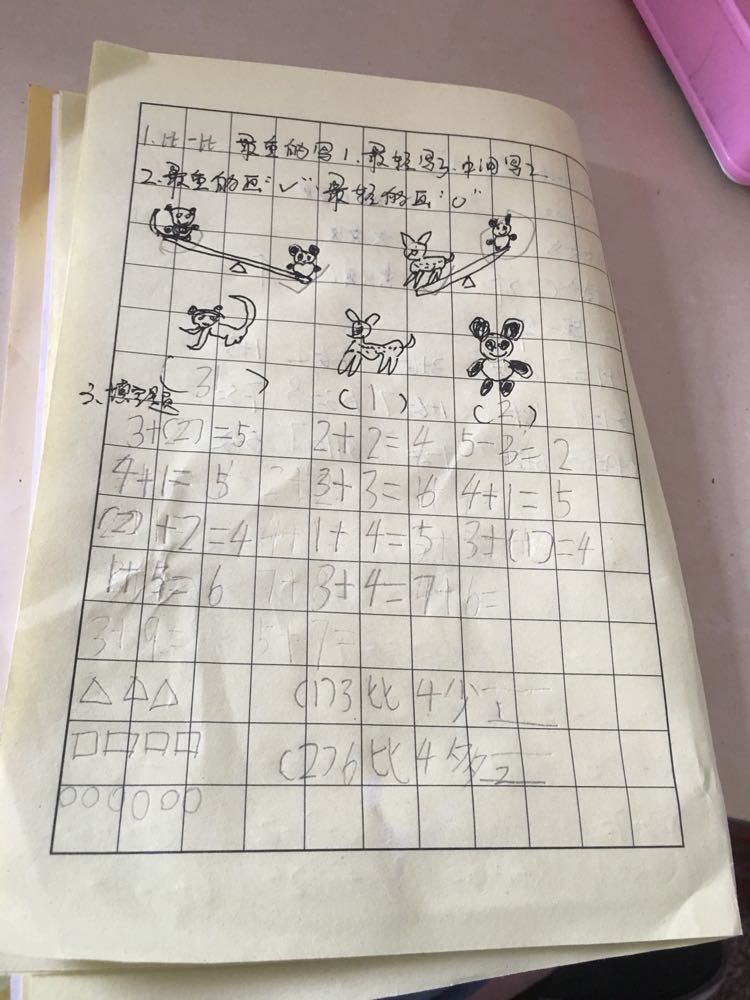 1.比一比 最重的写1.最轻写3.中间写2
2.最重的画“✓”最轻的画“○”
(3) (1) (2)
3、填字题
3+(2)=5 2+2=4 5-3=2
4+1=5 3+3=6 4+1=5
(2)+2=4 1+4=5 3+(1)=4
1+5=6 3+4=7
3+9= 5+7=
(1)3比4少1
(2)6比4多2